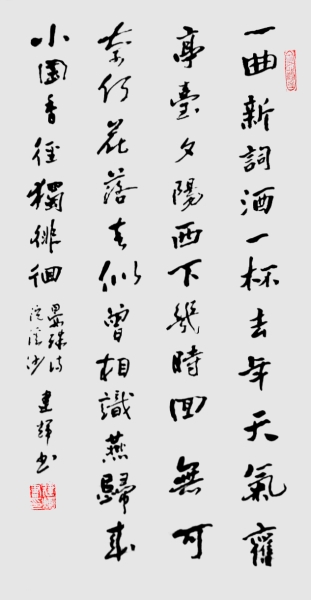 一曲新詞酒一杯去年天氣舊
亭臺夕陽西下幾時回無可
奈何花落去似曾相識燕歸來
小園香徑獨徘徊
晏殊詩
浣溪沙
建輝书